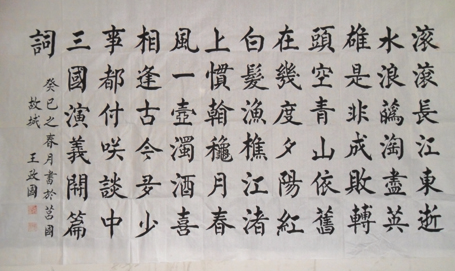 滾滾長江東逝
水浪蘤淘盡英
雄是非成敗轉
頭空青山依舊
在幾度夕陽紅
白髮漁樵江渚
上慣翰穐月春
風一壺濁酒喜
相逢古今多少
事都付咲談中
三國演義開篇
詞
癸巳之春月書於莒國
故城 王政國